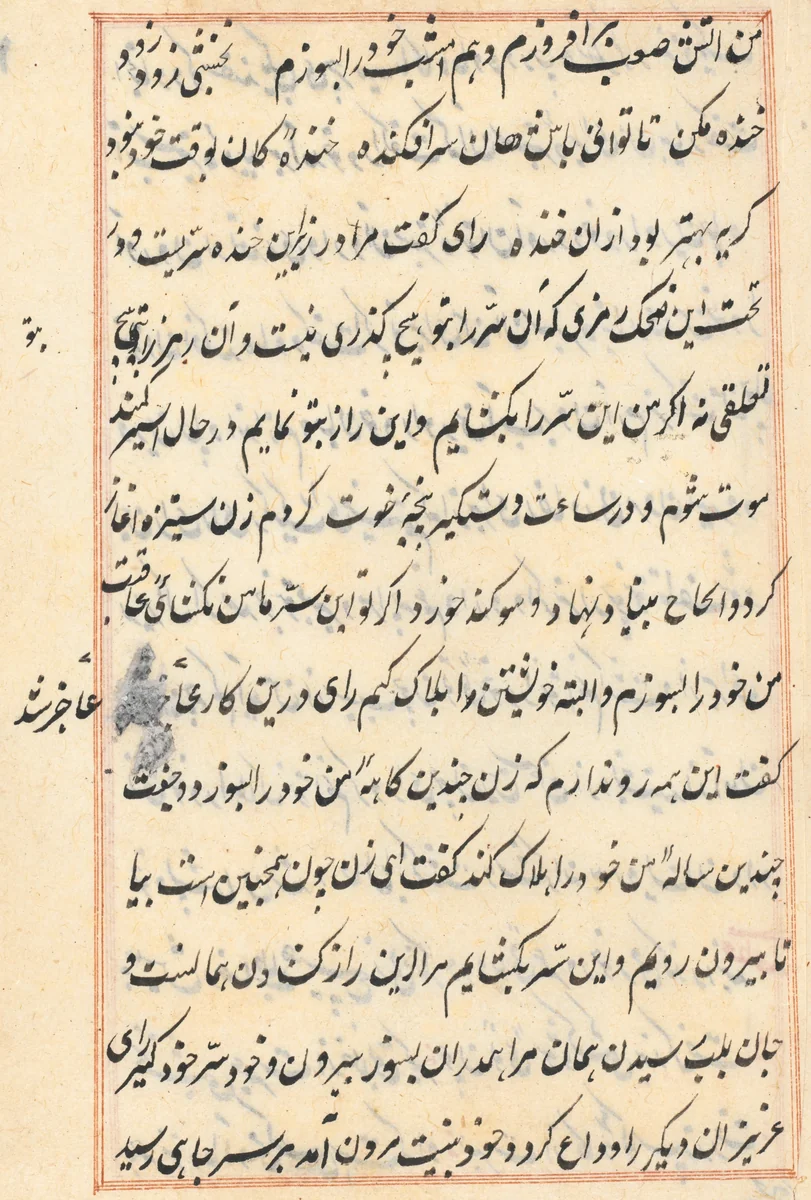 من آتش صعب برافروزم وهم امشب خود را بسوزم نخشبی زود زود
خنده مکن تا توانی باش هان سرافکنده خندهٔ کان بوقت خود نبود
کریه بهتر بود ازان خنده رای کفت مرا در زیر این خنده سرّیست و در
تحت این ضحک رمزی که آن سرّ را بتو هیچ کذری نیست و آن رمز را بتو هیچ
بتو
تعلقی نه اکر من این سرّ را بکشایم و این راز بتو نمایم در حال اسیر کمند
موت شوم و در ساعت دستکیر پنجهٔ فوت کردم زن ستیزه آغاز
کرد و الحاح بنیاد نهاد و سوکند خورد اکر تو این سرّ با من نکشائی عاقبت
من خود را بسوزم و البته خویشتن را هلاک کنم رای درین کار
عاجز شد
کفت این همه روا ندارم که زن چندین کاههٔ من خود را بسوزد و جفت
چندین سالهٔ من خود را هلاک کند کفت ای زن چون همچنین است بیا
تا بیرون رویم و این سرّ بکشایم مرا این راز کشادن همانست و
جان بلب رسیدن همان مرا همدران بسوز بیرون و خود سرّ خود کیر رای
عزیزان دیکر را وداع کرد و خود بنیت مردن آمد بر سر چاهی رسید